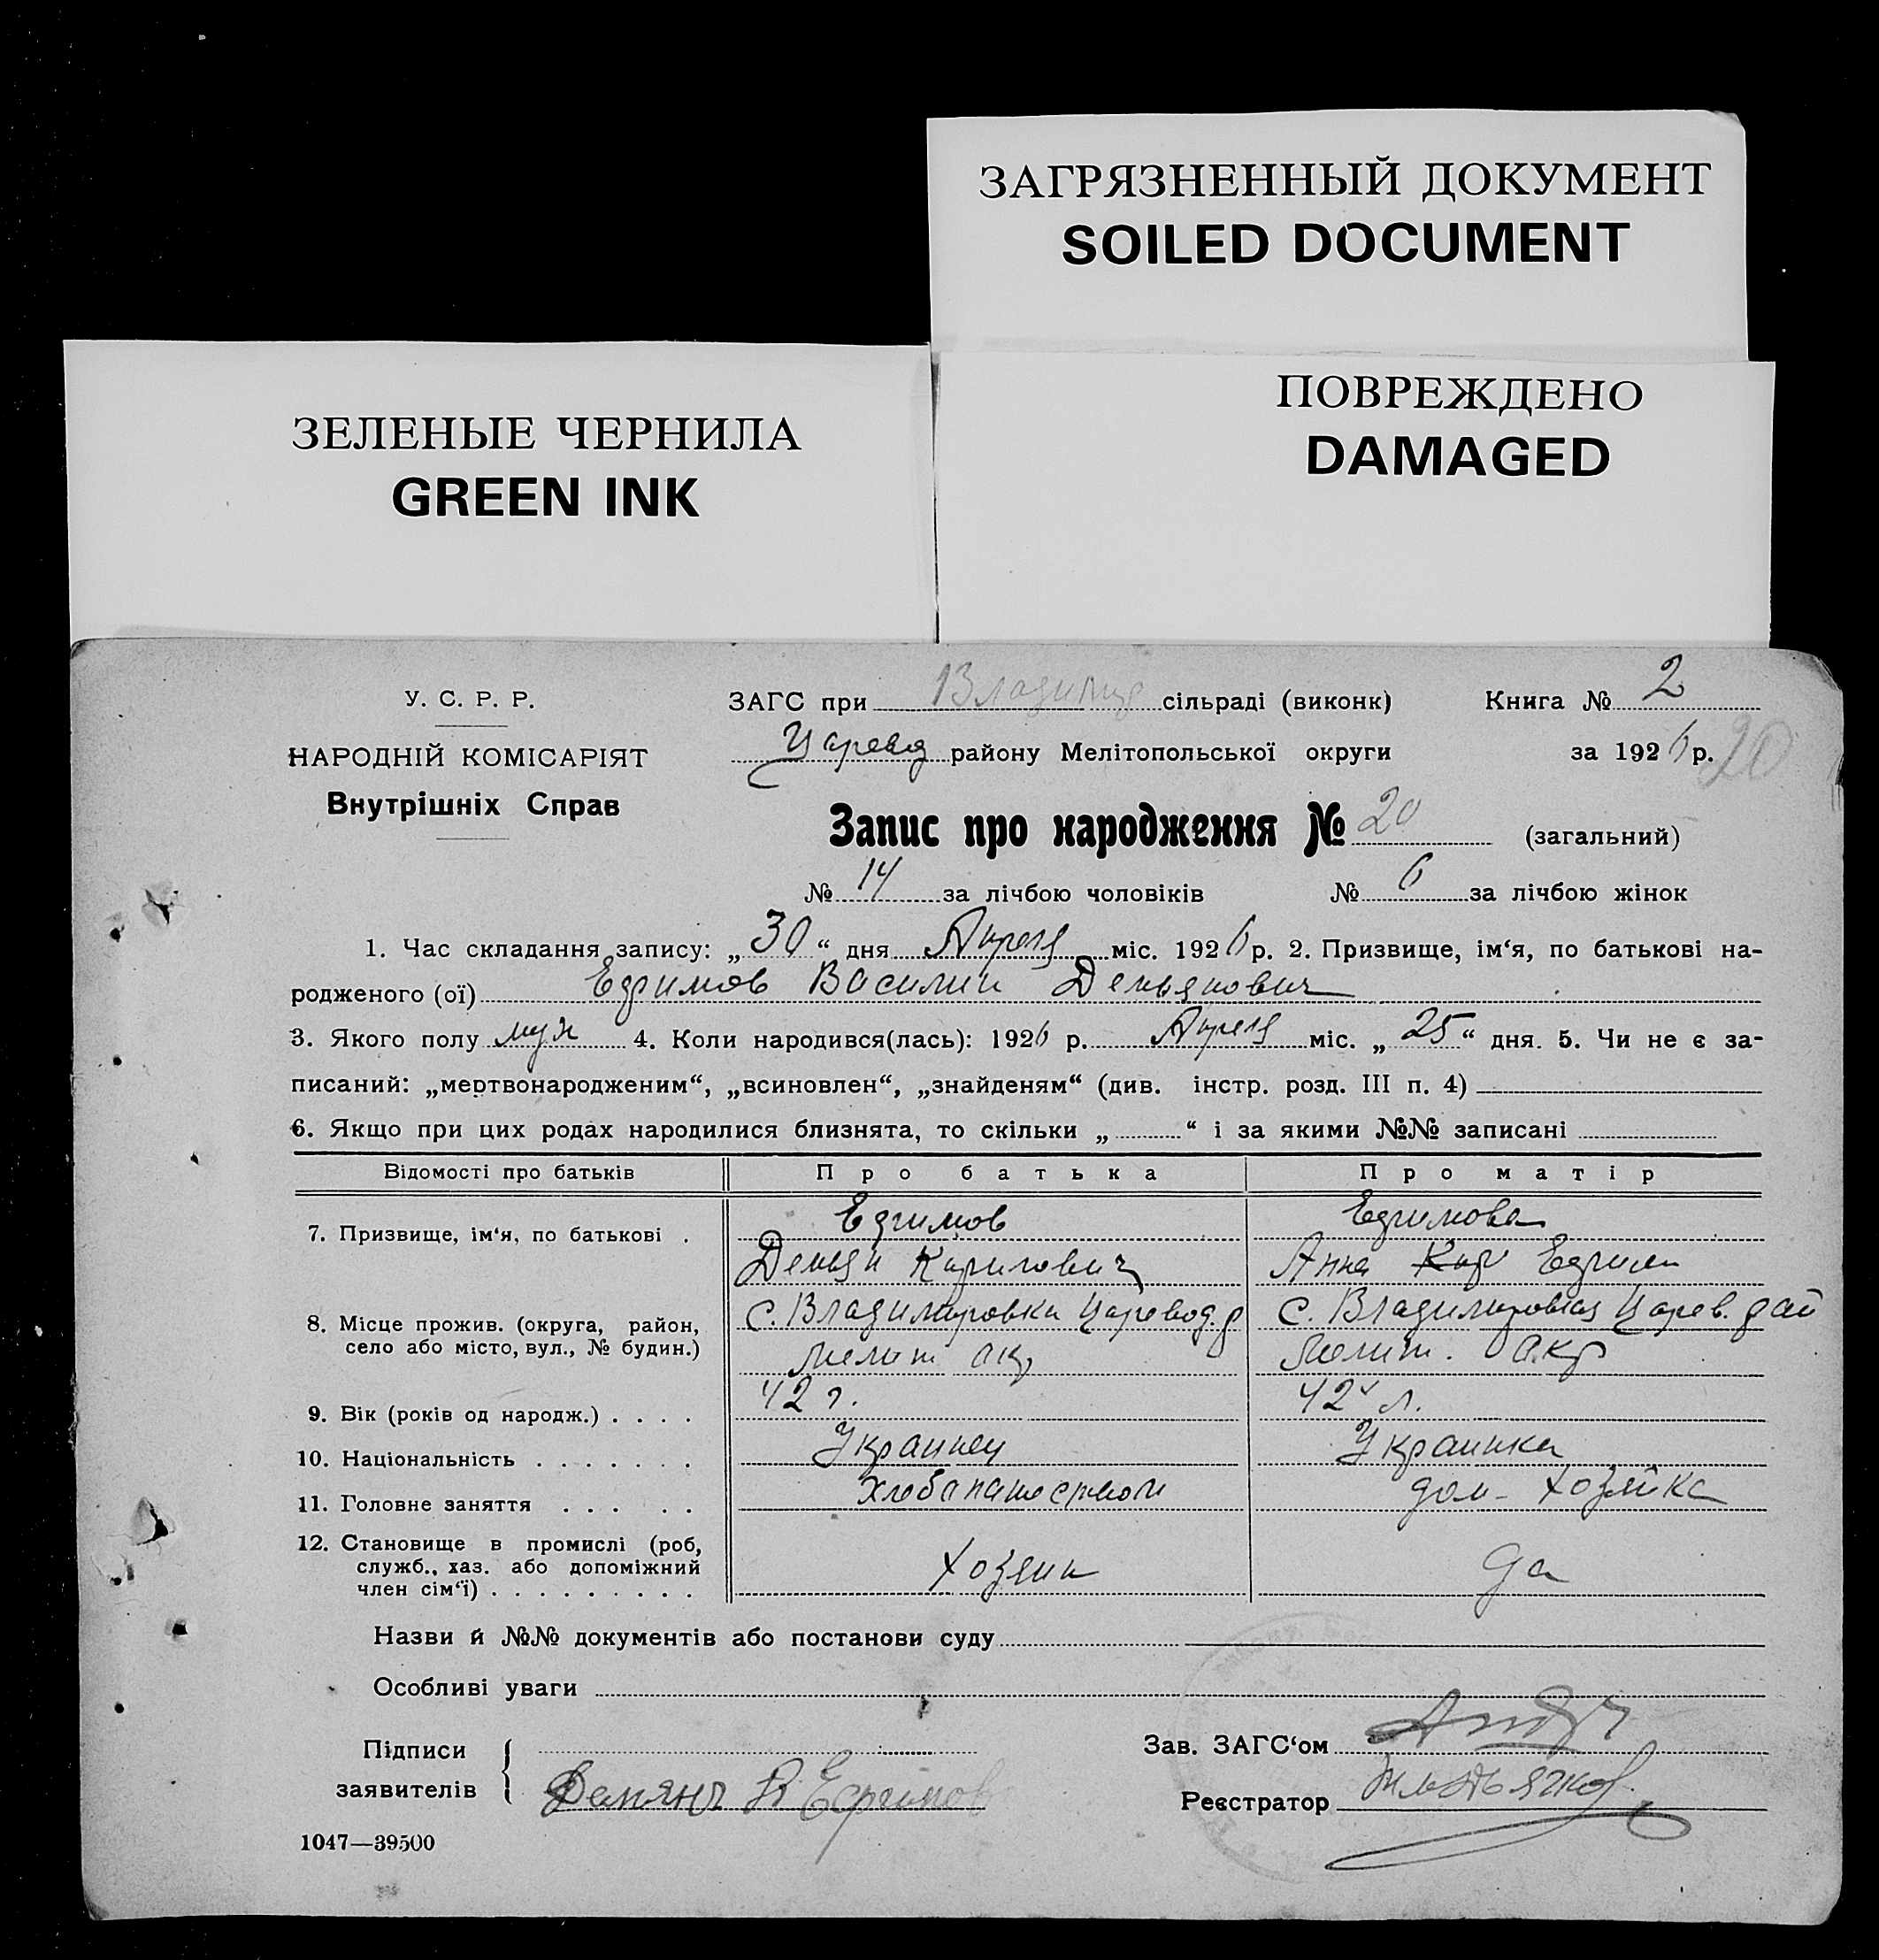 ЗАГРЯЗНЕННЫЙ ДОКУМЕНТ
SOILED DOCUMENT
ЗЕЛЕНЫЕ ЧЕРНИЛА
GREEN INK
ПОВРЕЖДЕНО
DAMAGED
У. С. Р. Р.
НАРОДНІЙ КОМІСАРІЯТ
Внутрішніх Справ
ЗАГС при сільраді (виконк) Книга № 2
Царевод району Мелітопольської округи за 1926 р. 20
Запис про народження № 20 (загальний)
№ 14 за лічбою чоловіків № 6 за лічбою жінок
1. Час складання запису: „30“ дня Апреля міс. 1926 р. 2. Призвище, ім‘я, по батькові на-
родженого (ої) Ефимов Василий Демьянович
3. Якого полу муж 4. Коли народився(лась): 1926 р. Апреля міс. „25“ дня. 5. Чи не є за-
писаний: „мертвонародженим“, „всиновлен“, „знайденям“ (див. інстр. розд. III п. 4)
6. Якщо при цих родах народилися близнята, то скільки „ “ і за якими №№ записані
Відомості про батьків Про батька Про матір
7. Призвище, ім‘я, по батькові . Ефимов Ефимова
Демьян Кирилович Анна Кир Ефим
8. Місце прожив. (округа, район, село або місто, вул., № будин.) с. Владимировка Царевод. р с. Владимировка Царев. рай
Мелит окр Мелит. окр
9. Вік (років од народж.) . . . . 42 г. 42 л.
10. Національність . . . . . . . Украинец Украинка
11. Головне заняття . . . . . дом- хозяйка
12. Становище в промислі (роб, служб., хаз. або допоміжний член сім‘ї) . . . . . . . . . хозяин да
Назви й №№ документів або постанови суду
Особливі уваги
Підписи заявителів Демянъ К Ефимов
Зав. ЗАГС‘ом
Реєстратор
1047—39500